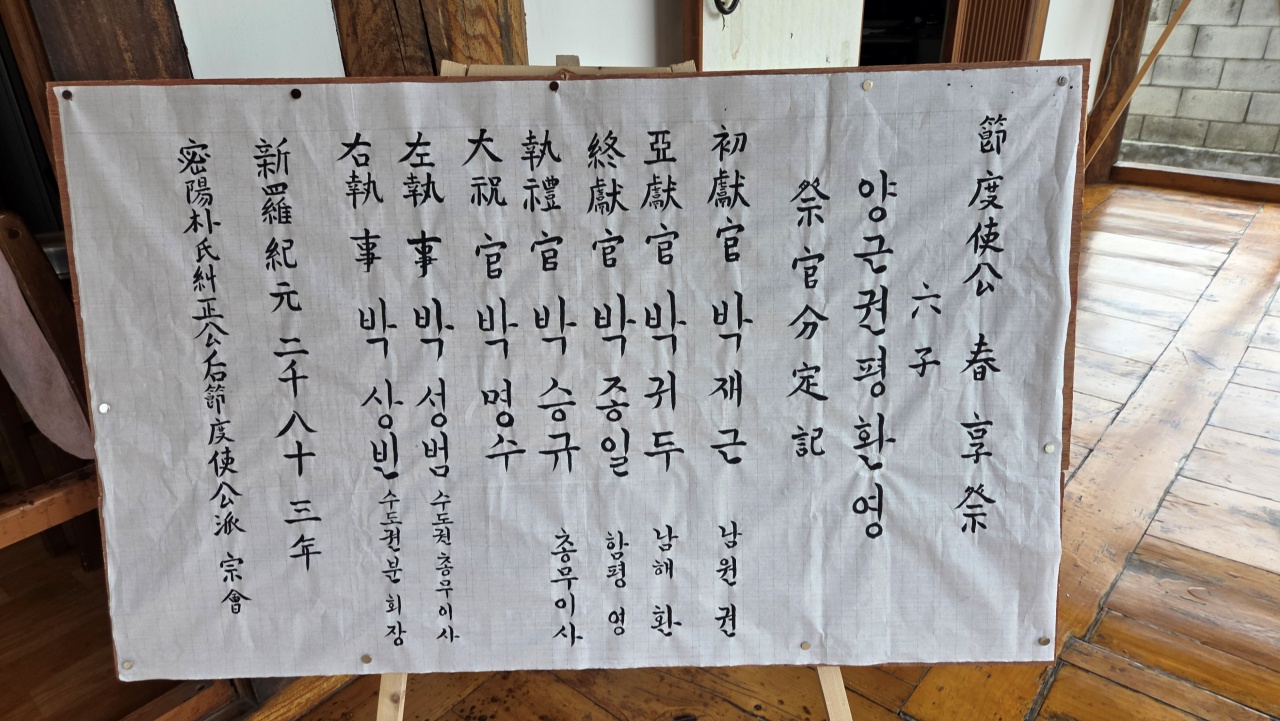 節度使公 春享祭
六子
양근권평환영
祭官分定記
初獻官 박재근 남원 권
亞獻官 박귀두 남해 환
終獻官 박종일 함평 영
執禮官 박승규 총무이사
大祝官 박명수
左執事 박성범 수도권 총무이사
右執事 박상빈 수도권분회장
新羅紀元 二千八十三年
密陽朴氏糾正公后節度使公派 宗會